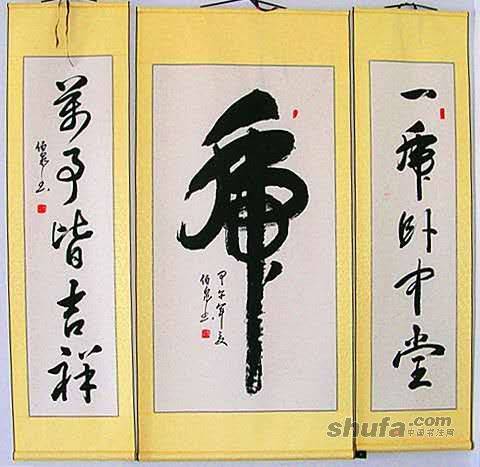 一虎卧中堂
虎
甲午年夏
伯泉书
萬事皆吉祥
伯泉书
shufa.com
中国书法网